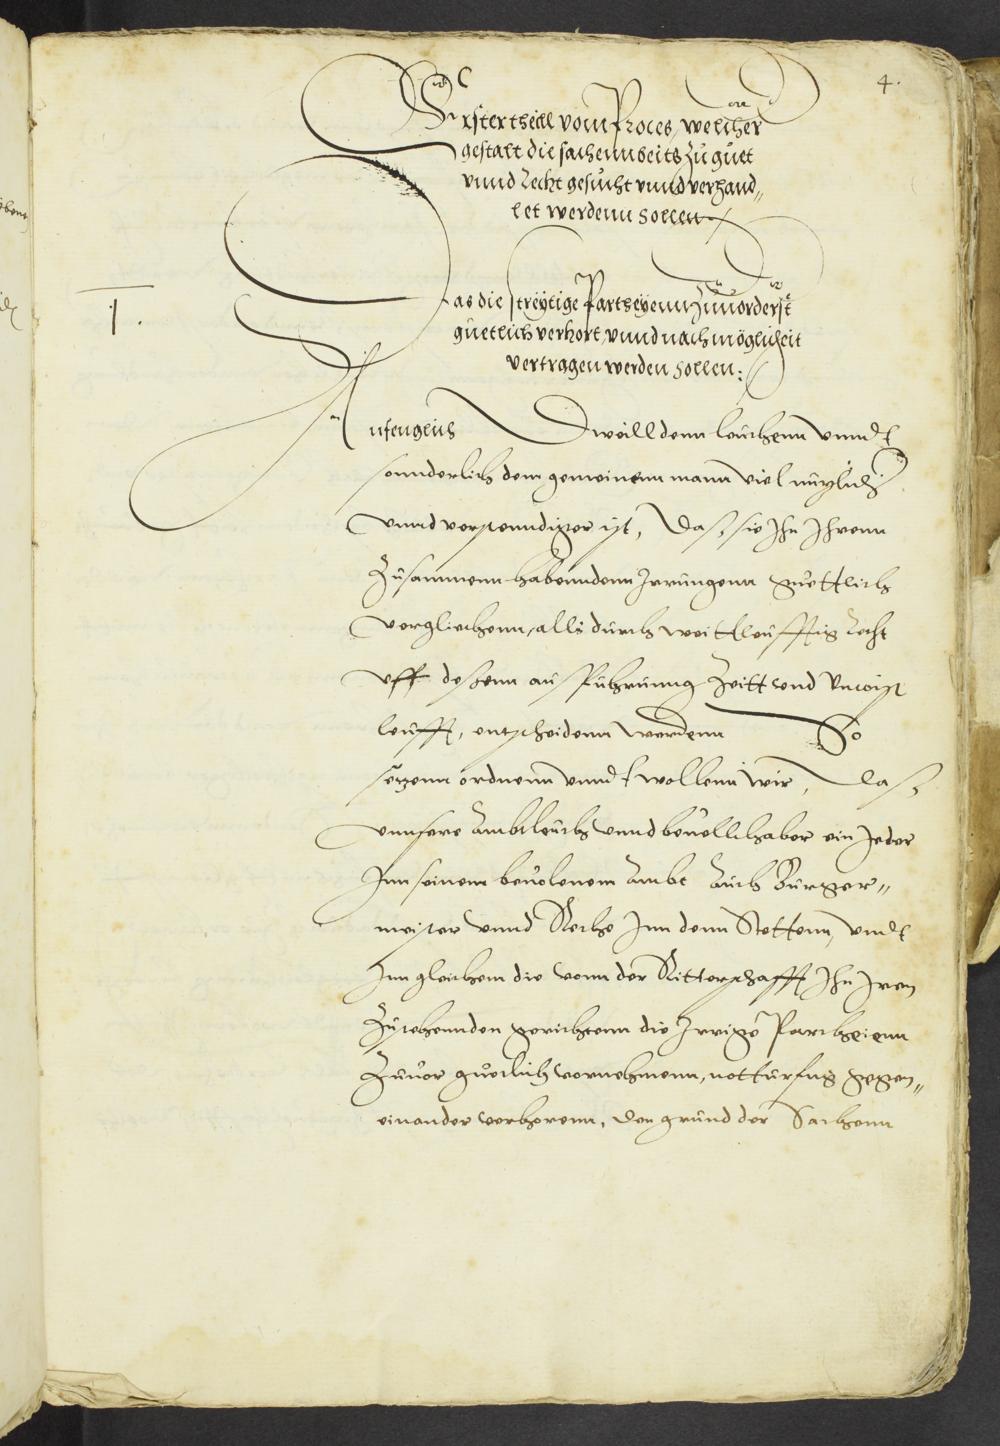 4.
Erster theill vom Proces, welcher
gestalt die sachenn beits zu guet
vnnd Recht gesucht vnnd verhand„
let werdenn sollen
I.
Das die streÿtige Partheÿenn Zuuorderst
guetlich verhort, vnnd nach mögligkeit
vertragen werden sollen:
Anfenglich Dweill denn leuthenn vnndt
sonnderlich dem gemeinenn mann viel nüzlich
vnnd verstenndiger ist, Daß sie Jhn Jhrenn
Zusammenn habenndenn Jrrungenn guettlich
verglichenn, alls durch weittleufftig Recht
vff deßenn ausfuhrunng Zeitt vnd
laufft, entscheidenn werdenn So
sezenn ordnenn vnndt wollenn wir, Daß
vnnsere Ambtleuth vnnd beuellhaber ein Jeder
Jnn seinem beuolenem Ambt Auch Burger„
meister vnnd Rethe Jnn denn Stettenn, vndt
Jnn gleichem die vonn der Ritterschafft Jhn Jren
Zustehennden gerichtenn die Jrrige Partheienn
Zuuor guetlich vornehmenn, notturftig gegen„
einander verhorenn, den grund der Sachenn